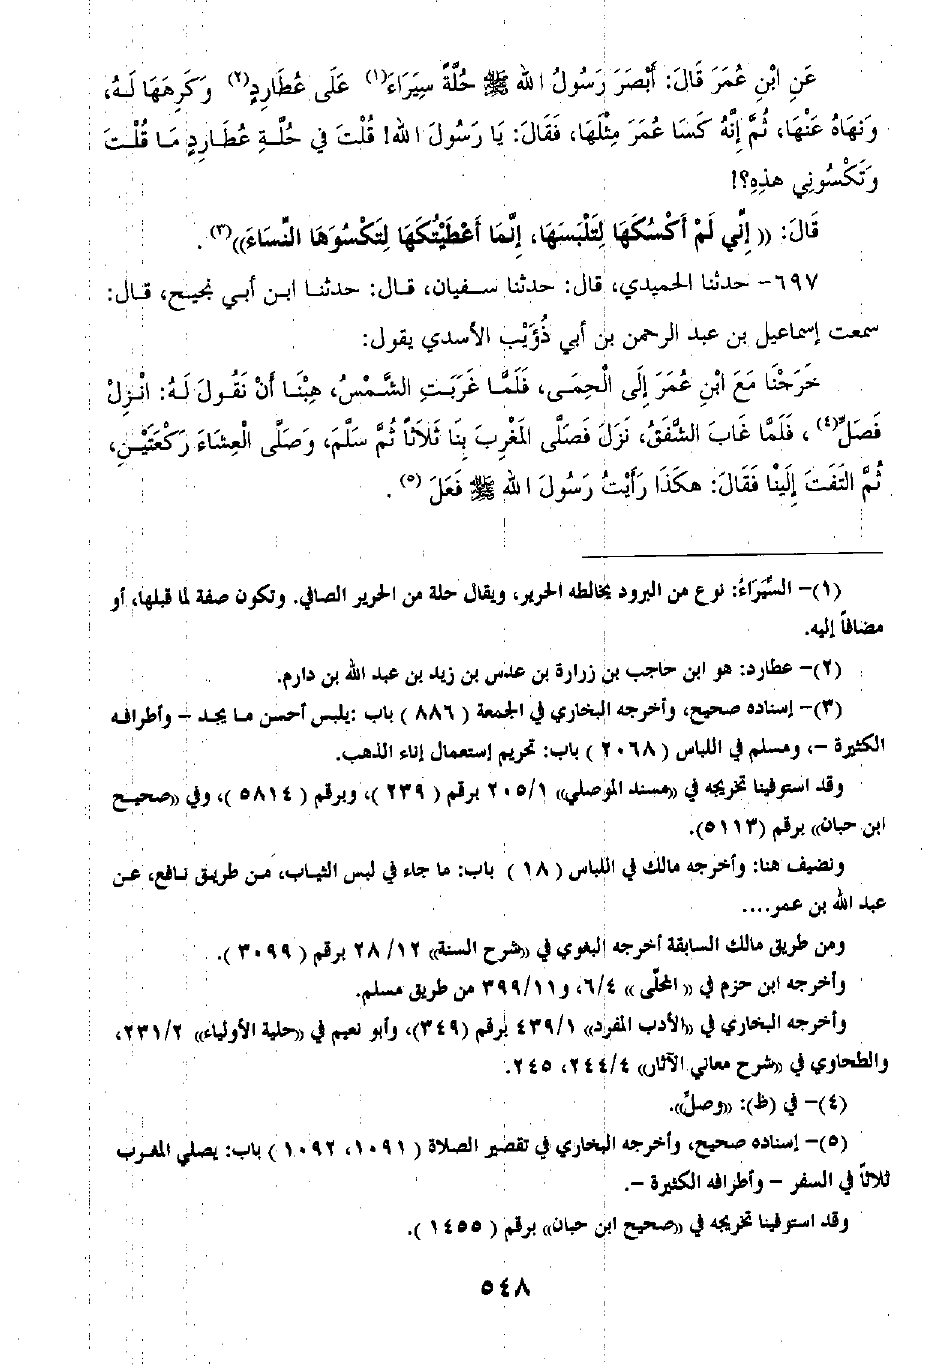 عَنِ ابْنِ عُمَرَ قَالَ: أَبْصَرَ رَسُولُ الله ﷺ حُلَّةً سِيَرَاءَ(١) عَلَى عُطَارِدٍ(٢) وَكَرِهَهَا لَهُ،
وَنَهَاهُ عَنْهَا، ثُمَّ إِنَّهُ كَسَا عُمَرَ مِثْلَهَا، فَقَالَ: يَا رَسُولَ الله! قُلْتَ فِي حُلَّةِ عُطَارِدٍ مَا قُلْتَ
وَتَكْسُونِي هذِهِ؟!
قَالَ: (( إِنِّي لَمْ أَكْسُكَهَا لِتَلْبَسَهَا، إِنَّمَا أَعْطَيْتُكَهَا لِتَكْسُوَهَا النِّسَاءَ))(٣) .
٦٩٧- حدثنا الحميدي، قال: حدثنا سفيان، قال: حدثنا ابن أبي نجيح، قال:
سمعت إسماعيل بن عبد الرحمن بن أبي ذُؤَيْب الأسدي يقول:
خَرَجْنَا مَعَ ابْنِ عُمَرَ إِلَى الْحِمَى، فَلَمَّا غَرَبَتِ الشَّمْسُ، هِبْنَا أَنْ نَقُولَ لَهُ: انْزِلْ
فَصَلِّ(٤) ، فَلَمَّا غَابَ الشَّفَقُ، نَزَلَ فَصَلَّى المَغْرِبَ بِنَا ثَلاَثاً ثُمَّ سَلَّمَ، وَصَلَّى الْعِشَاءَ رَكْعَتَيْنِ،
ثُمَّ التَفَتَ إِلَيْنَا فَقَالَ: هكَذَا رَأَيْتُ رَسُولَ الله ﷺ فَعَلَ (٥) .
(١)- السِّيَرَاءُ: نوع من البرود يخالطه الحرير، ويقال حلة من الحرير الصافي. وتكون صفة لما قبلها، أو
مضافاً إليه.
(٢)- عطارد: هو ابن حاجب بن زرارة بن عدس بن زيد بن عبد الله بن دارم.
(٣)- إسناده صحيح، وأخرجه البخاري في الجمعة ( ٨٨٦ ) باب :يلبس أحسن ما يجد – وأطرافه
الكثيرة –، ومسلم في اللباس ( ٢٠٦٨ ) باب: تحريم إستعمال إناء الذهب.
وقد استوفينا تخريجه في ((مسند الموصلي)) ٢٠٥/١ برقم ( ٢٣٩ )، وبرقم ( ٥٨١٤ )، وفي ((صحيح
ابن حبان)) برقم (٥١١٣).
ونضيف هنا: وأخرجه مالك في اللباس ( ١٨ ) باب: ما جاء في لبس الثياب، من طريق نافع، عن
عبد الله بن عمر....
ومن طريق مالك السابقة أخرجه البغوي في ((شرح السنة)) ١٢/ ٢٨ برقم ( ٣٠٩٩ ).
وأخرجه ابن حزم في (( المحلّى )) ٦/٤، و٣٩٩/١١ من طريق مسلم.
وأخرجه البخاري في ((الأدب المفرد)) ٤٣٩/١ برقم (٣٤٩)، وأبو نعيم في ((حلية الأولياء)) ٢٣١/٢،
والطحاوي في ((شرح معاني الآثار)) ٢٤٤/٤، ٢٤٥.
(٤)- في (ظ): ((وصلِّ)).
(٥)- إسناده صحيح، وأخرجه البخاري في تقصير الصلاة ( ١٠٩١، ١٠٩٢ ) باب: يصلي المغرب
ثلاثاً في السفر – وأطرافه الكثيرة –.
وقد استوفينا تخريجه في ((صحيح ابن حبان)) برقم ( ١٤٥٥ ).
٥٤٨